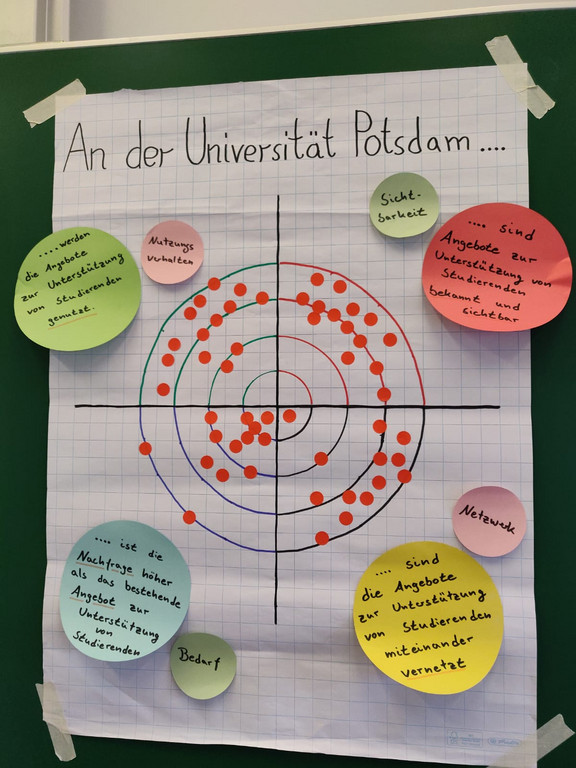 An der Universität Potsdam....
....werden
die Angebote
zur Unterstützung
von Studierenden
genutzt.
Nutzungs
verhalten
Sicht-
barkeit
.... sind
Angebote zur
Unterstützung von
Studierenden
bekannt und
sichtbar
.... ist die
Nachfrage höher
als das bestehende
Angebot zur
Unterstützung
von
Studierenden
Bedarf
Netzwerk
.... sind
die Angebote
zur Unterstützung
von Studierenden
miteinander
vernetzt